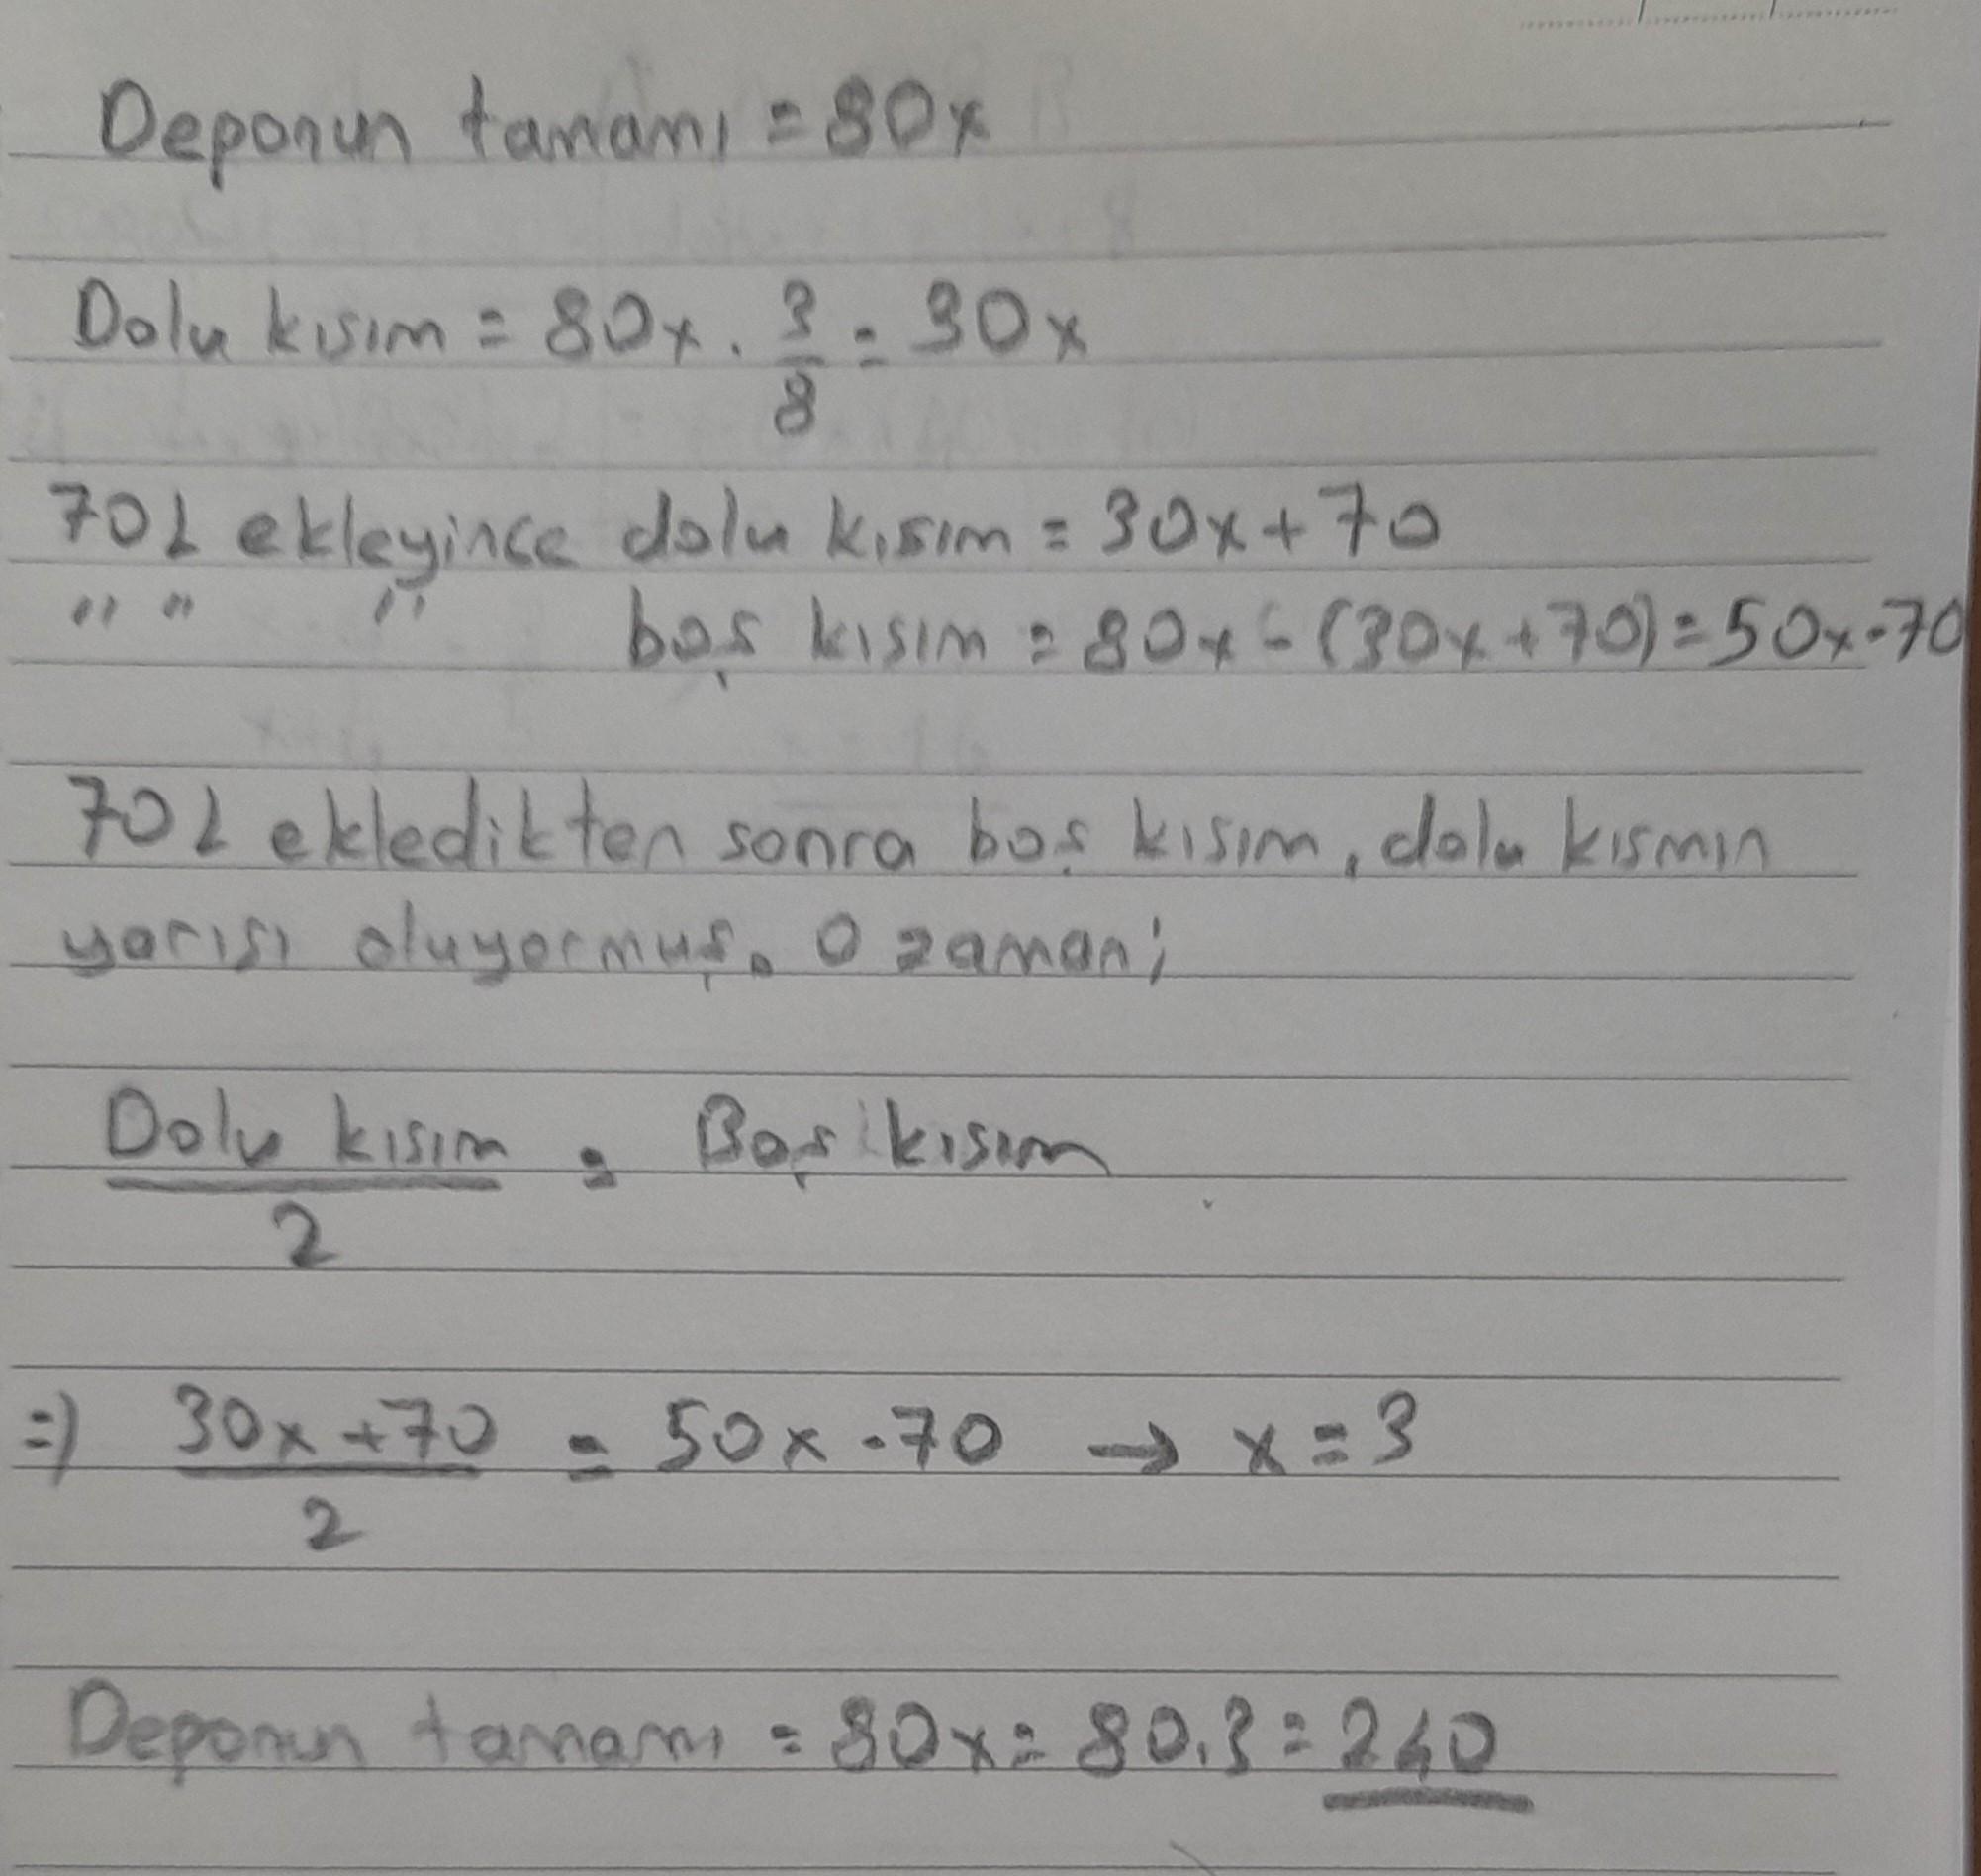 Deponun tamamı = 80x
Dolu kısım = 80x . 3/8 = 30x
70L ekleyince dolu kısım = 30x + 70
" " " boş kısım = 80x - (30x + 70) = 50x - 70
70L ekledikten sonra boş kısım, dolu kısmın
yarısı oluyormuş. O zaman;
Dolu kısım / 2 = Boş kısım
⇒ 30x + 70 / 2 = 50x - 70 → x = 3
Deponun tamamı = 80x = 80.3 = 240